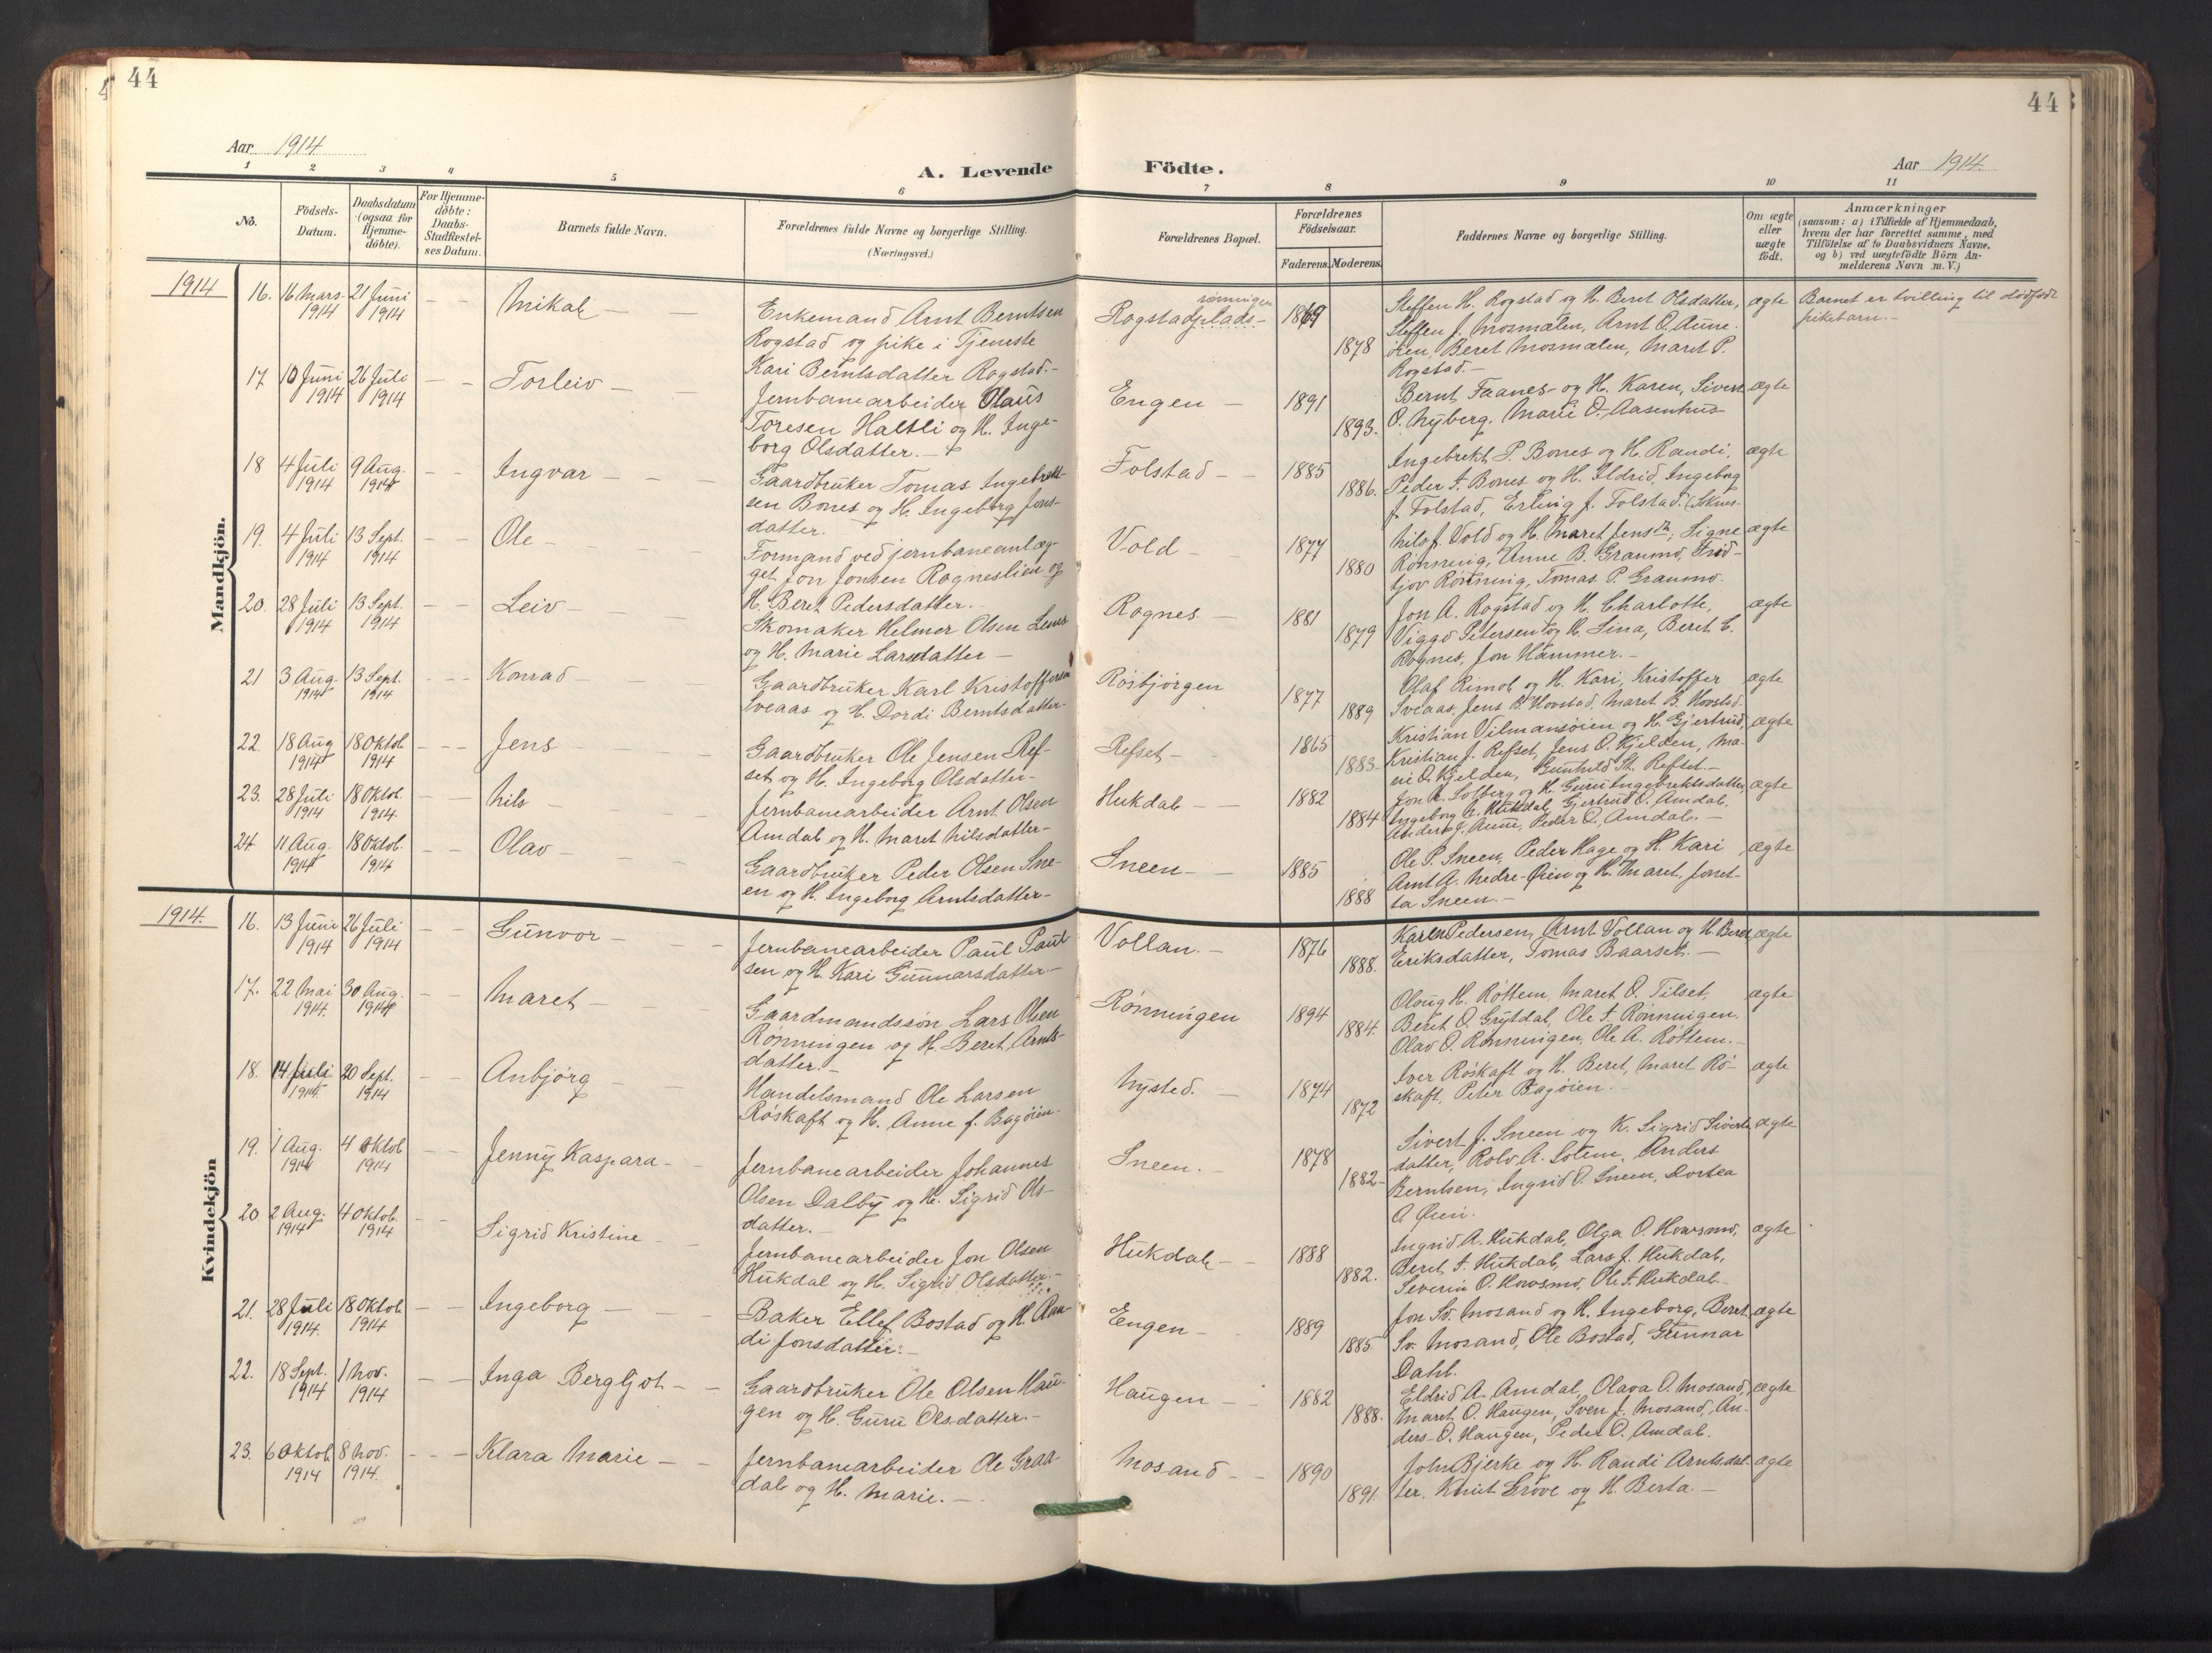 44
44
Aar 1914
A. Levende Födte.
Aar 1914.
1 2 3 4 5 6 7 8 9 10 11
No.
Födsels-
Datum.
Daabsdatum
(ogsaa for
Hjemme-
döbte).
For Hjemme-
döbte:
Daabs-
Stadfæstel-
ses Datum.
Barnets fulde Navn.
Forældrenes fulde Navne og borgerlige Stilling.
(Næringsvei.)
Forældrenes Bopæl.
Forældrenes
Födselsaar.
Faderens. Moderens.
Faddernes Navne og borgerlige Stilling.
Om ægte
eller
uægte
födt.
Anmærkninger
(saasom: a) i Tilfælde af Hjemmedaab,
hvem der har forrettet samme, med
Tilföielse af to Daabsvidners Navne,
og b) ved uægtefödte Börn An-
melderens Navn m. V.)
Mandkjön.
1914
16. 16 Mars 1914 21 Juni 1914 - - Mikal
Enkemand Arnt Berntsen
Rogstad og pike i Tjeneste
Kari Berntsdatter Rogstad.-
rönningen
Rogstadplads- 1869 1878
Steffen H. Rogstad og H. Beret Olsdatter,
Steffen J. Mosmælen, Arnt O. Aune-
öien, Beret Mosmælen, Maret P.
Rogstad.-
ægte
Barnet er tvilling til dödfödt
pikebarn.-
17 10 Juni 1914 26 Juli 1914 - - Torleiv -
Jernbanearbeider Olaus
Toresen Haltli og H. Inge-
borg Olsdatter.-
Engen - 1891 1893.
Bernt Faanes- og H. Karen, Sivert
O. Nyberg, Marie O. Aasenhus-
ægte
18 4 Juli 1914 9 Aug. 1914 - - Ingvar -
Gaardbruker Tomas Ingebrikt-
sen Bones og H. Ingeborg Jons-
datter.
Folstad - 1885 1886.
Ingebrikt P. Bones og H. Randi,
Peder I. Bones og H. Eldrid, Ingeborg
J. Folstad, Erling J. Folstad.
ægte
19. 4 Juli 1914 13 Sept. 1914 - - Ole -
Formand ved jernbaneanlæg-
get Jon Jonsen Rogneslien og
H. Beret Pedersdatter.
Vold - 1877 1880
Nils J. Vold og H. Maret Jensdtr, Signe
Rönning, Anne B. Graumo, Frid-
tjov Rönning, Tomas P. Graumo.
ægte
20. 28 Juli 1914 13 Sept. 1914 - - Leiv -
Skomaker Helmer Olsen Lenes
og H. Marie Larsdatter -
Rognes. - 1881 1879
Jon A. Rogstad og H. Charlotte,
Viggo Petersen og H. Lina, Beret C.
Rognes, Jon Hammer.-
ægte
21 3 Aug. 1914 13 Sept. 1914 - - Konrad -
Gaardbruker Karl Kristoffersen
Sveaas og H. Dordi Berntsdatter-
Rösbjörgen 1877 1889
Olaf Rimol og H. Kari, Kristoffer
Sveaas, Jens B. Hovstad, Maret B. Hovstad.
ægte
22. 18 Aug 1914 18 Oktob. 1914 - - - Jens -
Gaardbruker Ole Jensen Ref-
set og H. Ingeborg Olsdatter-
Refset - 1865 1883-
Kristian Vilmansöien og H. Gjertrud,
Kristian J. Refset, Jens O. Kjelden, Ma-
rie O. Kjelden, Gunhild St. Refset.-
ægte
23. 28 Juli 1914 18 Oktob. 1914 - - Nils -
Jernbanearbeider Arnt Olsen
Amdal og H. Maret Nilsdatter-
Hukdal - 1882 1884
Jon A. Solberg og H. Guru Ingebriktsdatter,
Ingeborg A. Hukdal, Gjertrud O. Amdal,
Anders J. Aune, Peder O. Amdal.-
ægte
24 11 Aug. 1914 18 Oktob. 1914 - - Olav -
Gaardbruker Peder Olsen Sne-
en og H. Ingeborg Arntsdatter-
Sneen - 1885 1888
Ole P. Sneen, Peder Hage og H. Kari
Arnt A. Nedre-Öien og H. Maret, Jonet-
ta Sneen.-
ægte
Kvindekjön
1914.
16. 13 Juni 1914 26 Juli 1914 - - Gunvor -
Jernbanearbeider Paul Paul-
sen og H. Kari Gunnarsdatter-
Vollan. - 1876 1888.
Karen Pedersen, Arnt Vollan og H. Beret
Eriksdatter, Tomas Baarset.-
ægte
17. 22 Mai 1914. 30 Aug. 1914 - - Maret -
Gaardmandssön Lars Olsen
Rönningen og H. Beret Arnts-
datter.-
Rönningen 1894 1884.
Oloug H. Röttem, Maret O. Tilset,
Beret O. Grytdal, Ole I. Rönningen,
Olav O. Rönningen, Ole A. Röttem.-
ægte
18. 14 Juli 1914. 20 Sept. 1914 - - Anbjörg
Handelsmand Ole Larsen
Röskaft og H. Anne J. Bagöien-
Nysted. - 1874 1872
Iver Röskaft og H. Beret, Maret Rö-
skaft, Peter Bagöien.-
ægte
19. 1 Aug. 1914 4 Oktob 1914 - - Jenny Kaspara -
Jernbanearbeider Johannes
Olsen Dalby og H. Sigrid Ols-
datter.-
Sneen. - 1878 1882-
Sivert J. Sneen og K. Sigrid Siverts-
datter, Rolv A. Sotem, Anders
Berntsen, Ingrid O. Sneen, Dortea
A Öien.
ægte
20 2 Aug. 1914 4 Oktob. 1914 - - Sigrid Kristine -
Jernbanearbeider Jon Olsen
Hukdal og H. Sigrid Olsdatter.-
Hukdal - 1888 1882.
Ingrid A. Hukdal, Olga O. Hovsmo,
Beret I. Hukdal, Lars J. Hukdal,
Severin O. Hovsmo, Ole I. Hukdal-
ægte
21. 28 Juli 1914. 18 Oktob 1914 - - Ingeborg -
Baker Ellef Bostad og H. Ran-
di Jonsdatter.-
Engen - 1889 1885
Jon Sv. Mosand og H. Ingeborg, Beret
Sv. Mosand, Ole Bostad, Gunnar
Dahl.
ægte
22. 18 Sept. 1914 1 Nov. 1914 - - Inga Bergljot -
Gaardbruker Ole Olsen Hau-
gen og H. Guru Olsdatter.-
Haugen - 1882 1888.
Eldrid A. Amdal, Olava O. Mosand,
Maret O. Haugen, Sven J. Mosand, An-
ders O. Haugen, Peder O. Amdal.
ægte
23. 6 Oktob 1914 8 Nov. 1914. - - - Klara Marie -
Jernbanearbeider Ole Graa-
dal og H. Marie.-
Mosand - 1890 1891.
John Bjerke og H. Randi Arntsdat-
ter, Knut Grove og H. Berta.-
ægte